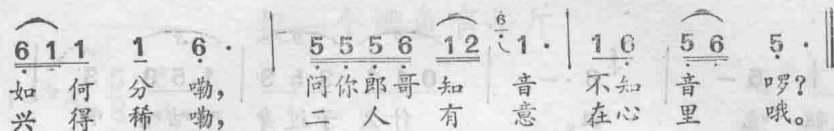 6 1 1 1 6 · | 5 5 5 6 1 2 6 1 · | 1 6 5 6 5 · ‖
如何分嘞，问你郎哥知音不知音啰？
兴得稀嘞，二人有意在心里哦。